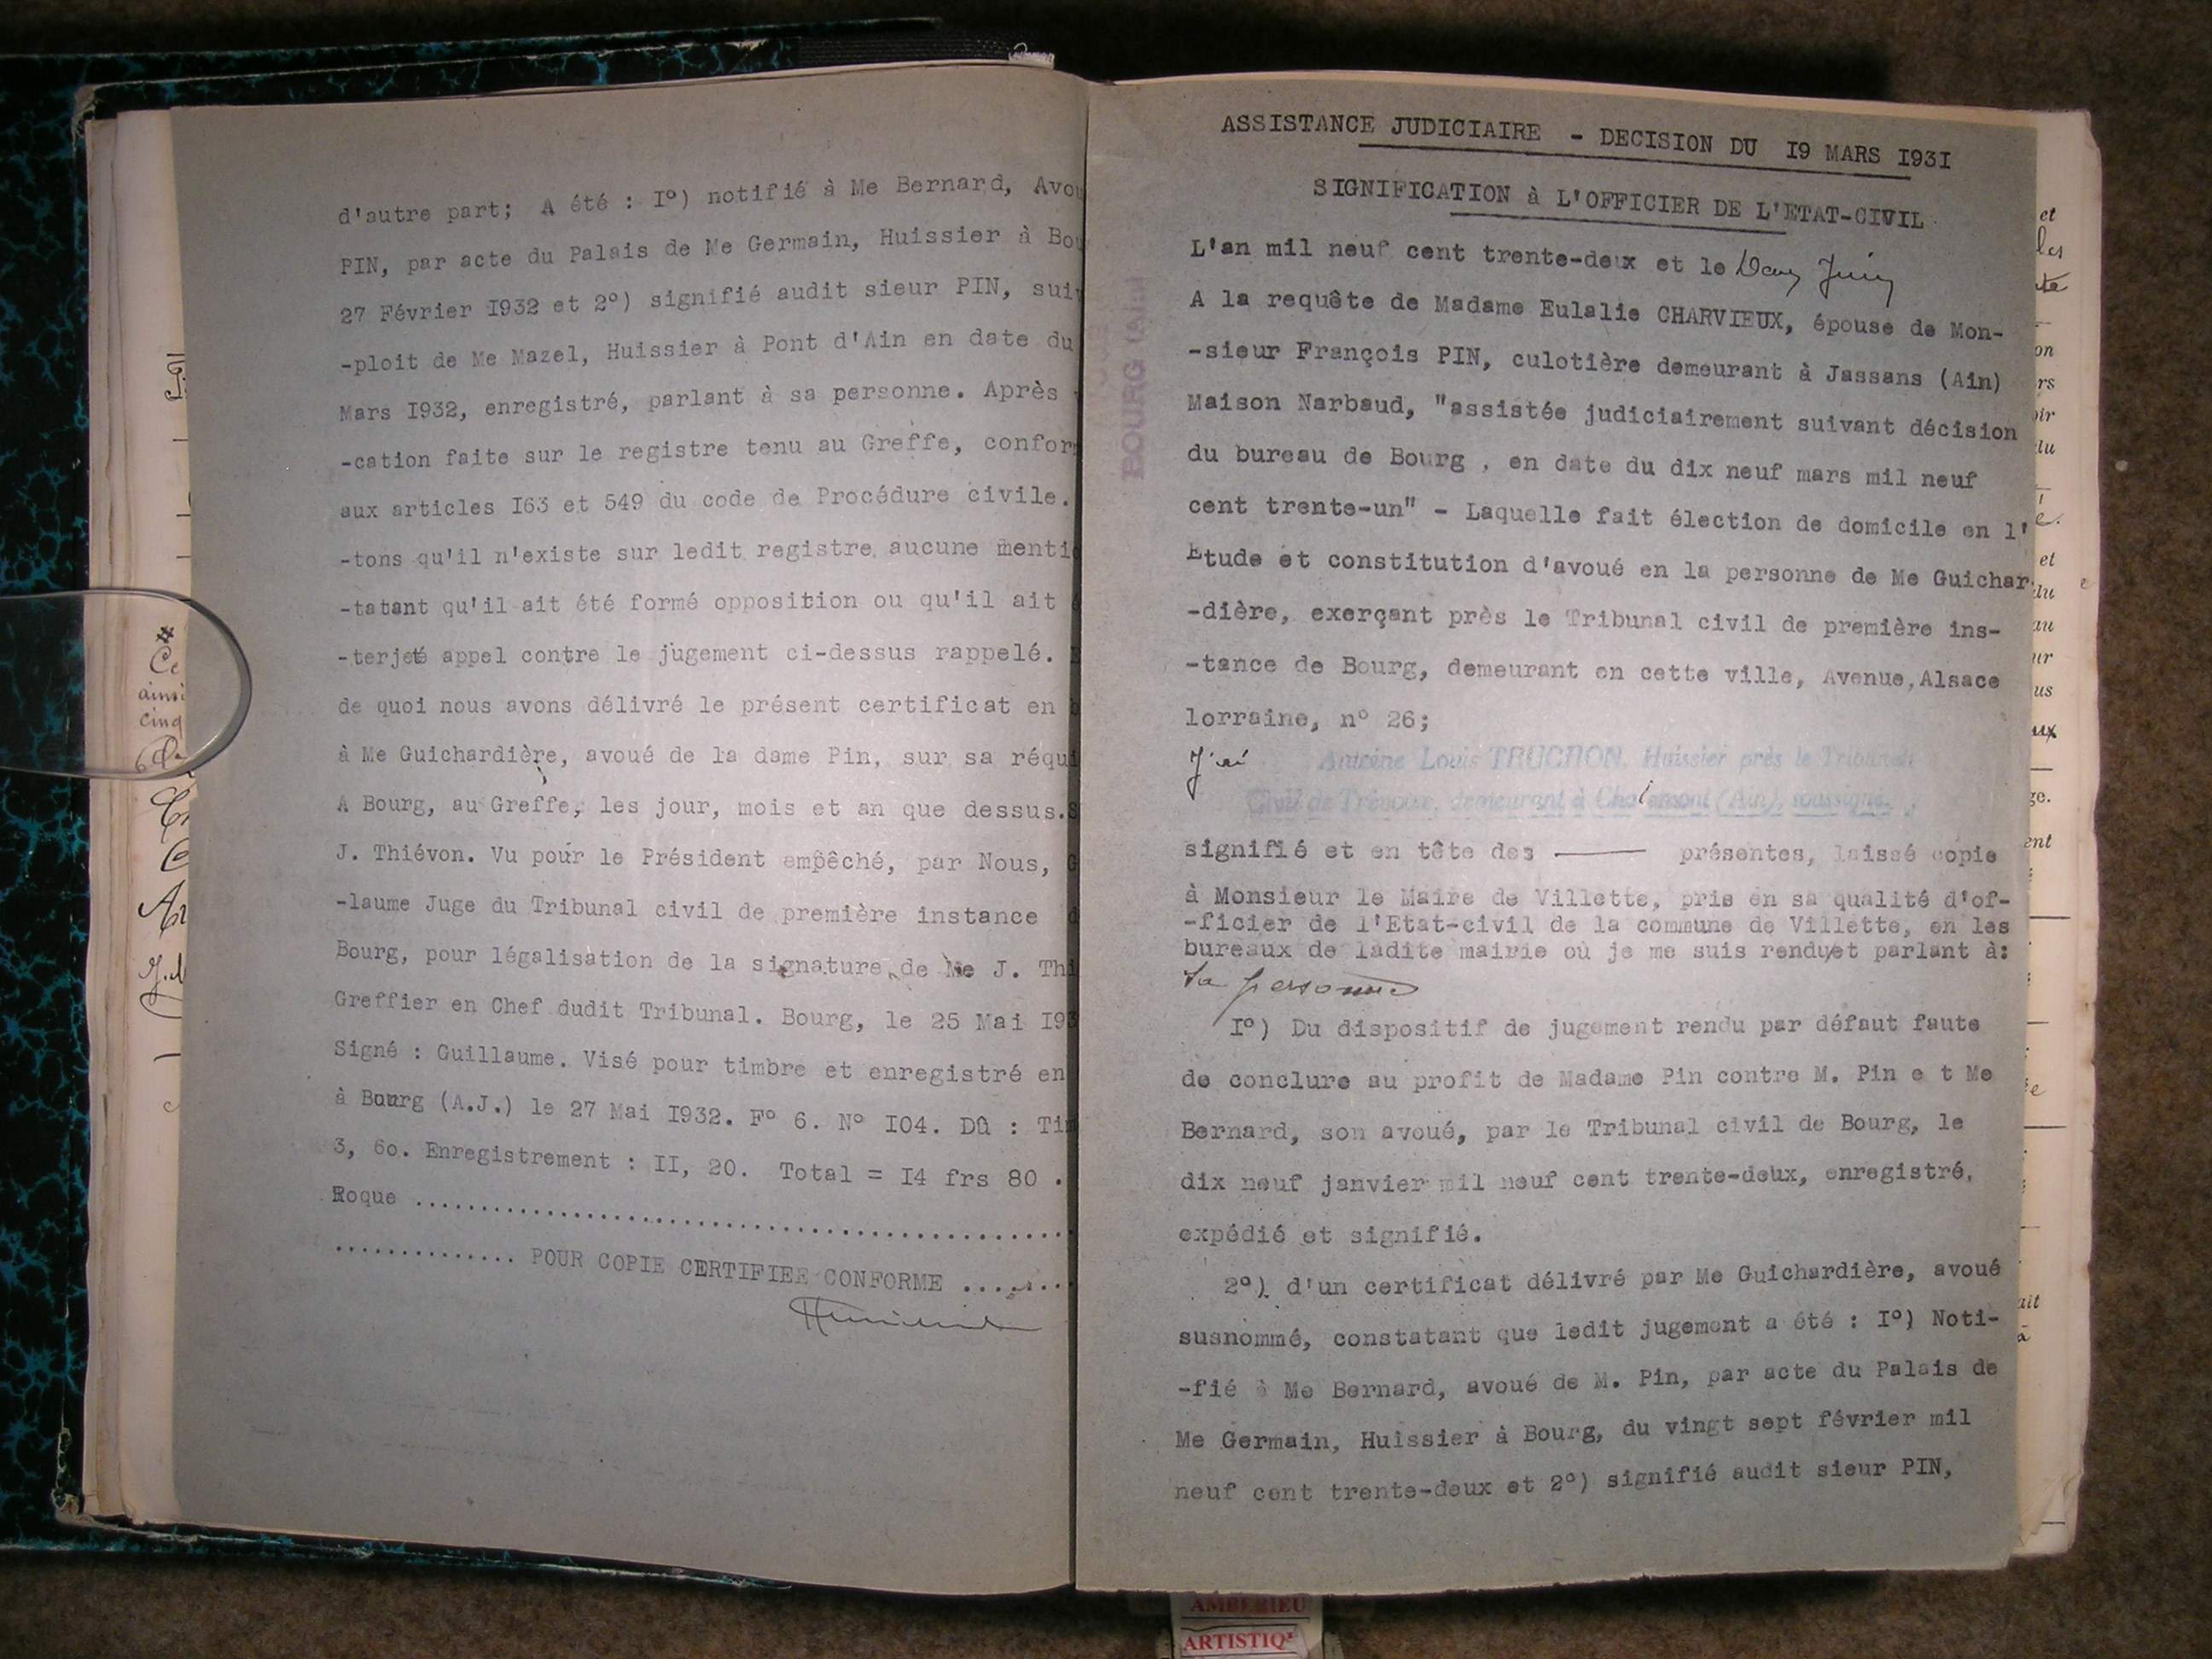 d'autre part; A été : I°) notifié à Me Bernard, Avou
PIN, par acte du Palais de Me Germain, Huissier à Bou
27 Février I932 et 2°) signifié audit sieur PIN, suiv
-ploit de Me Mazel, Huissier à Pont d'Ain en date du
Mars I932, enregistré, parlant à sa personne. Après
-cation faite sur le registre tenu au Greffe, conform
aux articles I63 et 549 du code de Procédure civile.
-tons qu'il n'existe sur ledit registre aucune menti
-tatant qu'il ait été formé opposition ou qu'il ait
-terjeté appel contre le jugement ci-dessus rappelé.
de quoi nous avons délivré le présent certificat en
à Me Guichardière, avoué de la dame Pin, sur sa réqui
A Bourg, au Greffe, les jour, mois et an que dessus.S
J. Thiévon. Vu pour le Président empêché, par Nous, G
-laume Juge du Tribunal civil de première instance d
Bourg, pour légalisation de la signature de Me J. Thi
Greffier en Chef dudit Tribunal. Bourg, le 25 Mai I93
Signé : Guillaume. Visé pour timbre et enregistré en
à Bourg (A.J.) le 27 Mai I932. F° 6. N° I04. Dû : Tim
3, 60. Enregistrement : II, 20. Total = I4 frs 80 .
Roque ..................................................
.............. POUR COPIE CERTIFIEE CONFORME ........
Ce
ainsi
cinq
BOURG (Ain)
ASSISTANCE JUDICIAIRE - DECISION DU I9 MARS I93I
SIGNIFICATION à L'OFFICIER DE L'ETAT-CIVIL
L'an mil neuf cent trente-deux et le Deux Juin
A la requête de Madame Eulalie CHARVIEUX, épouse de Mon-
-sieur François PIN, culotière demeurant à Jassans (Ain)
Maison Narbaud, "assistée judiciairement suivant décision
du bureau de Bourg , en date du dix neuf mars mil neuf
cent trente-un" - Laquelle fait élection de domicile en l'
Etude et constitution d'avoué en la personne de Me Guichar
-dière, exerçant près le Tribunal civil de première ins-
-tance de Bourg, demeurant en cette ville, Avenue,Alsace
lorraine, n° 26;
J'ai Antoine Louis TRUCHON, Huissier près le Tribunal
Civil de Trévoux, demeurant à Chalamont (Ain), soussigné.
signifié et en tête des ——— présentes, laissé copie
à Monsieur le Maire de Villette, pris en sa qualité d'of-
-ficier de l'Etat-civil de la commune de Villette, en les
bureaux de ladite mairie où je me suis rendu,et parlant à:
sa personne
I°) Du dispositif de jugement rendu par défaut faute
de conclure au profit de Madame Pin contre M. Pin e t Me
Bernard, son avoué, par le Tribunal civil de Bourg, le
dix neuf janvier mil neuf cent trente-deux, enregistré,
expédié et signifié.
2°). d'un certificat délivré par Me Guichardière, avoué
susnommé, constatant que ledit jugement a été : I°) Noti-
-fié à Me Bernard, avoué de M. Pin, par acte du Palais de
Me Germain, Huissier à Bourg, du vingt sept février mil
neuf cent trente-deux et 2°) signifié audit sieur PIN,
AMBERIEU
ARTISTIQ